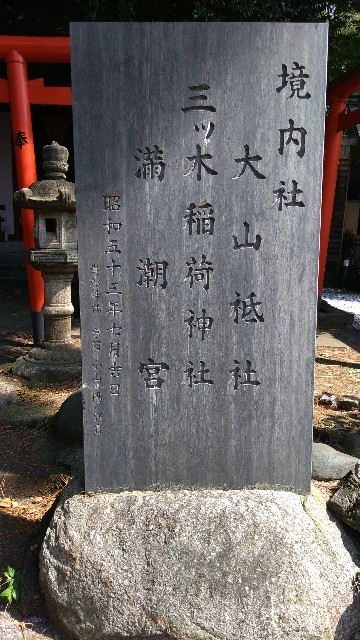 境内社
大山祗社
三ッ木稲荷神社
満潮宮
昭和五十三年七月吉日
奉